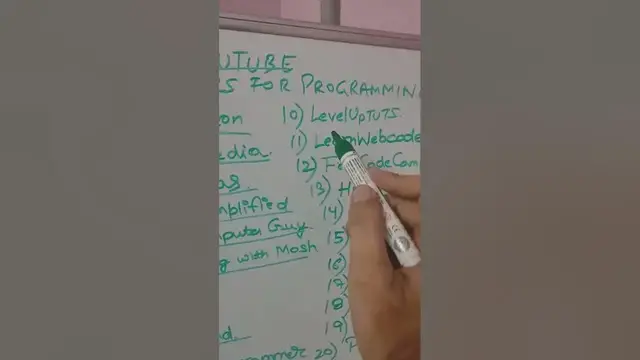 UTUBE
S FOR PROGRAMMIN
on
edia.
as.
mplified
mputer Guy
g with Mosh
d.
ammer
10) LevelUpTUTS.
11) Le nWebcode
12) F CodeCam
13) H
14)
15
16
17
18
19)
20) P